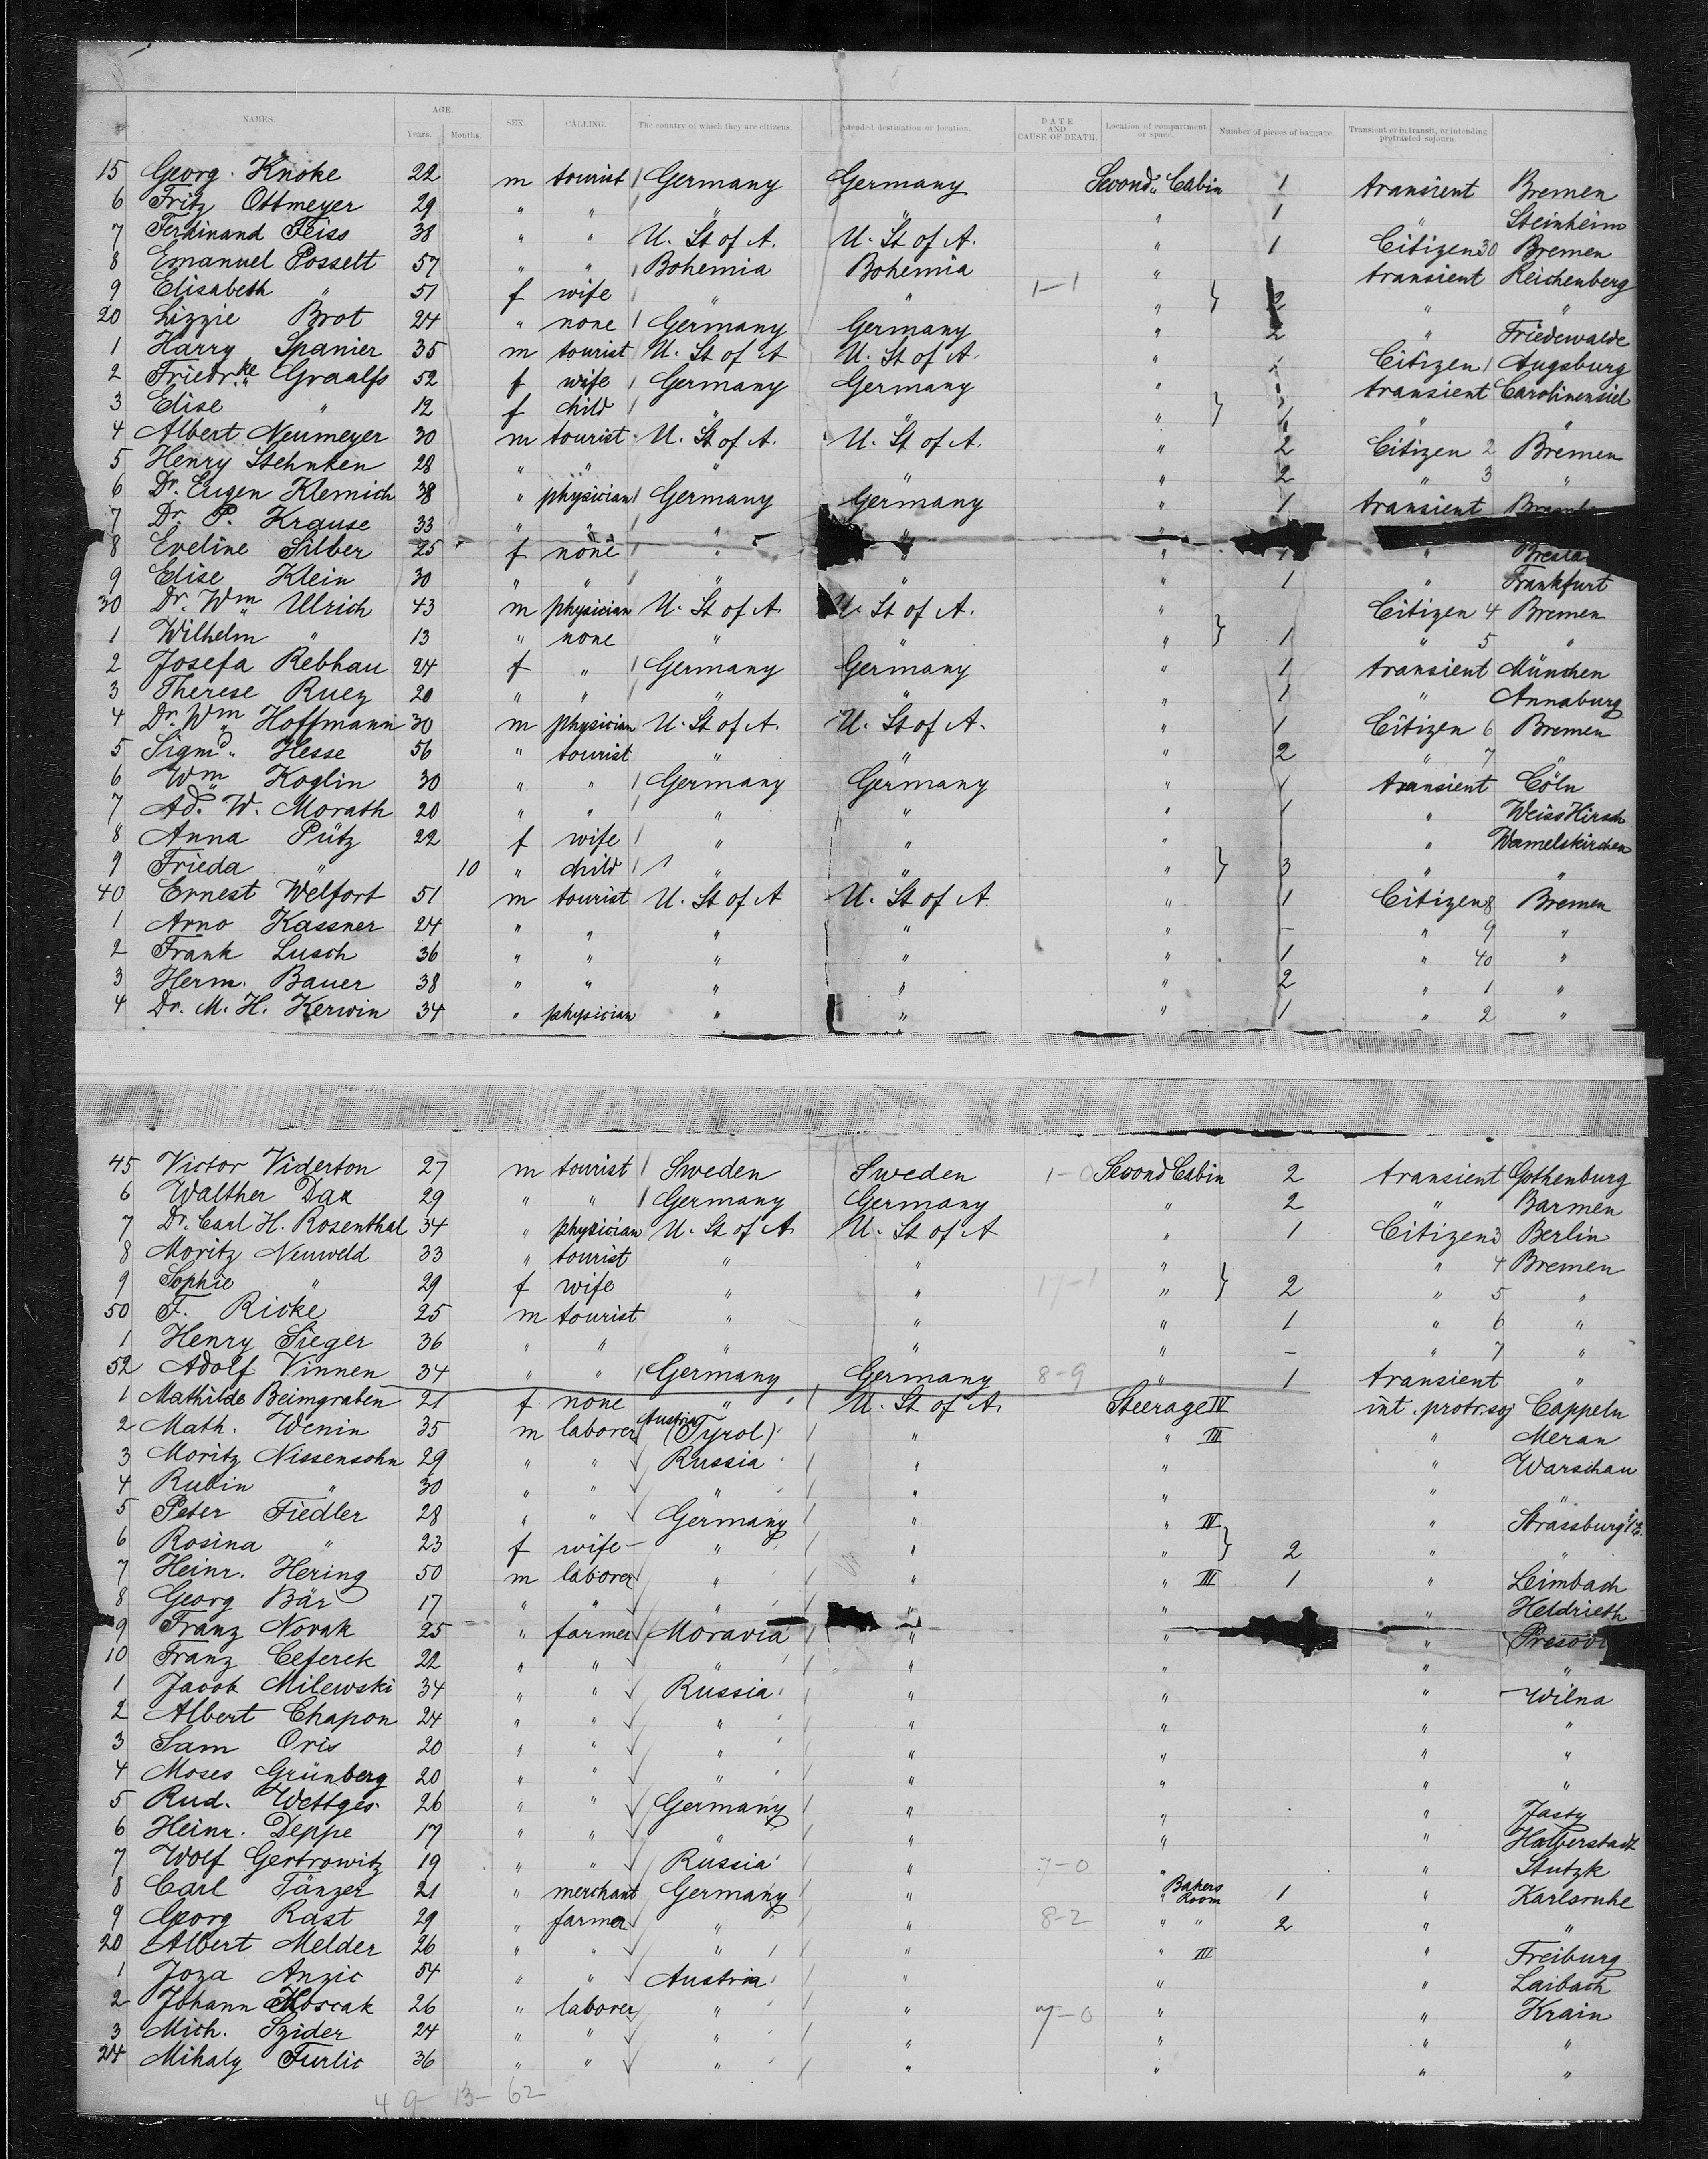 NAMES. AGE. Years. Months. SEX. CALLING. The country of which they are citizens. Intended destination or location. DATE AND CAUSE OF DEATH. Location of compartment or space. Number of pieces of baggage. Transient or in transit, or intending protracted sojourn.
15 Georg. Knoke 22 m tourist Germany Germany Second Cabin 1 transient Bremen
6 Fritz Ottmeyer 29 " " " " " 1 " Steinheim
7 Ferdinand Feiss 38 " " U. St of A. U. St of A. " 1 Citizen 30 Bremen
8 Emanuel Posselt 57 " " Bohemia Bohemia " transient Reichenberg
9 Elisabeth " 51 f wife " " 1-1 " } 2 " "
20 Lizzie Brot 24 " none Germany Germany " 2 " Friedewalde
1 Harry Spanier 35 m tourist U. St of A U. St of A. " Citizen 1 Augsburg
2 Friedrke Graalfs 52 f wife Germany Germany " transient Carolinensiel
3 Elise " 12 f child " " " } 1 " "
4 Albert Neumeyer 30 m tourist U. St of A. U. St of A. " 2 Citizen 2 Bremen
5 Henry Stehnken 28 " " " " " 2 " 3 "
6 Dr. Eugen Klemich 38 " physician Germany Germany " 1 transient
7 Dr. P. Krause 33 " " " " "
8 Eveline Silber 25 f none " " " 1 "
9 Elise Klein 30 " " " " " 1 " Frankfurt
30 Dr. Wm Ulrich 43 m physician U. St of A. U. St of A. " Citizen 4 Bremen
1 Wilhelm " 13 " none " " " } 1 " 5 "
2 Josefa Rebhau 24 f " Germany Germany " 1 transient München
3 Therese Ruez 20 " " " " " 1 " Annaburg
4 Dr. Wm Hoffmann 30 m physician U. St of A. U. St of A. " 1 Citizen 6 Bremen
5 Sigmd. Hesse 56 " tourist " " " 2 " 7 "
6 Wm Koglin 30 " " Germany Germany " 1 transient Cöln
7 Ad. W. Morath 20 " " " " " 1 " Weiss Hirsch
8 Anna Pütz 22 f wife " " " " Wermelskirchen
9 Frieda " 10 " child " " " } 3 " "
40 Ernest Welfort 51 m tourist U. St of A U. St of A " 1 Citizen 8 Bremen
1 Arno Kassner 24 " " " " " - " 9 "
2 Frank Lusch 36 " " " " " 1 " 40 "
3 Herm. Bauer 38 " " " " " 2 " 1 "
4 Dr. M. H. Kerwin 34 " physician " " " 1 " 2 "
45 Victor Viderton 27 m tourist Sweden Sweden 1-0 Second Cabin 2 transient Gothenburg
6 Walther Dax 29 " " Germany Germany " 2 " Barmen
7 Dr. Carl H. Rosenthal 34 " physician U. St of A. U. St of A " 1 Citizen 3 Berlin
8 Moritz Neuweld 33 " tourist " " " " 4 Bremen
9 Sophie " 29 f wife " " " } 2 " 5 "
50 F. Ricke 25 m tourist " " " 1 " 6 "
1 Henry Sieger 36 " " " " " - " 7 "
52 Adolf Vinnen 34 " " Germany Germany 8-9 " 1 transient "
1 Mathilde Beimgraben 21 f none " U. St of A. Steerage IV int. protr. soj Cappeln
2 Math. Wenin 35 m laborer Austria (Tyrol) " " III " Meran
3 Moritz Nissensohn 29 " " Russia " " " Warschau
4 Rubin " 30 " " " " " " "
5 Peter Fiedler 28 " " Germany " " IV " Strassburg
6 Rosina " 23 f wife " " " } 2 " "
7 Heinr. Hering 50 m laborer " " " III 1 " Leimbach
8 Georg Bär 17 " " " " " " Heldrieth
9 Franz Novak 25 " farmer Moravia " " "
10 Franz Ceferek 22 " " " " " " "
1 Jacob Milewski 34 " " Russia " " " Wilna
2 Albert Chapon 24 " " " " " " "
3 Sam Oris 20 " " " " " " "
4 Moses Grünberg 20 " " " " " " "
5 Rud. Wettges 26 " " Germany " " " Jasty
6 Heinr. Deppe 17 " " " " " " Halberstadt
7 Wolf Gertrowitz 19 " " Russia " 7-0 " " Stutzk
8 Carl Tänzer 21 " merchant Germany " " Bakers Room 1 " Karlsruhe
9 Georg Rast 29 " farmer " " 8-2 " " 2 " "
20 Albert Melder 26 " " " " " III " Freiburg
1 Joza Anzic 54 " " Austria " " " Laibach
2 Johann Koscak 26 " laborer " " 7-0 " " Krain
3 Mich. Szider 24 " " " " " " "
24 Mihaly Furlic 36 " " " " " " "
49 13- 62